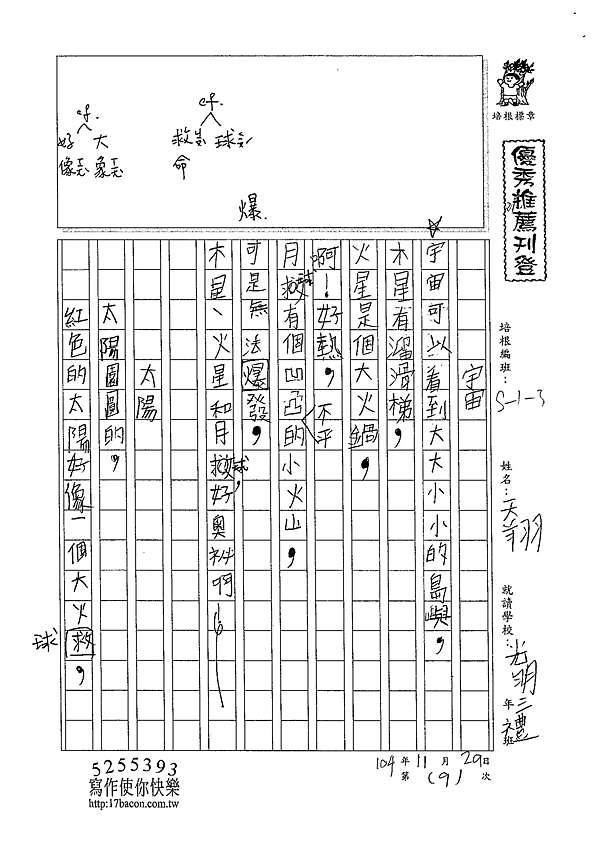 培根標章
優秀推薦刊登
培根編班：S-1-3
姓名：天翔
就讀學校：光明 三年 禮班
cf.
救 球
命
cf.
好 大
像 象
爆
宇宙
☆宇宙可以看到大大小小的島嶼，
木星有溜滑梯，
火星是個大火鍋，
啊！好熱，不平
月救球有個凹亞的小火山，
可是無法爆發，
木星、火星和月救球，好奧祕啊！
太陽
太陽圓圓的，
紅色的太陽好像一個大火救，
球
104年11月29日
第(9)次
5255393
寫作使你快樂
http:17bacon.com.tw